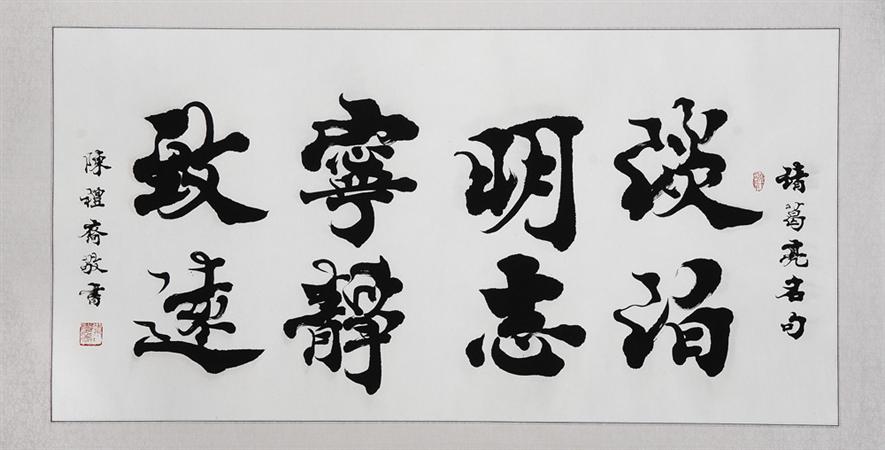 諸葛亮名句
淡泊
明志
寧靜
致遠
陳禮裔敬書